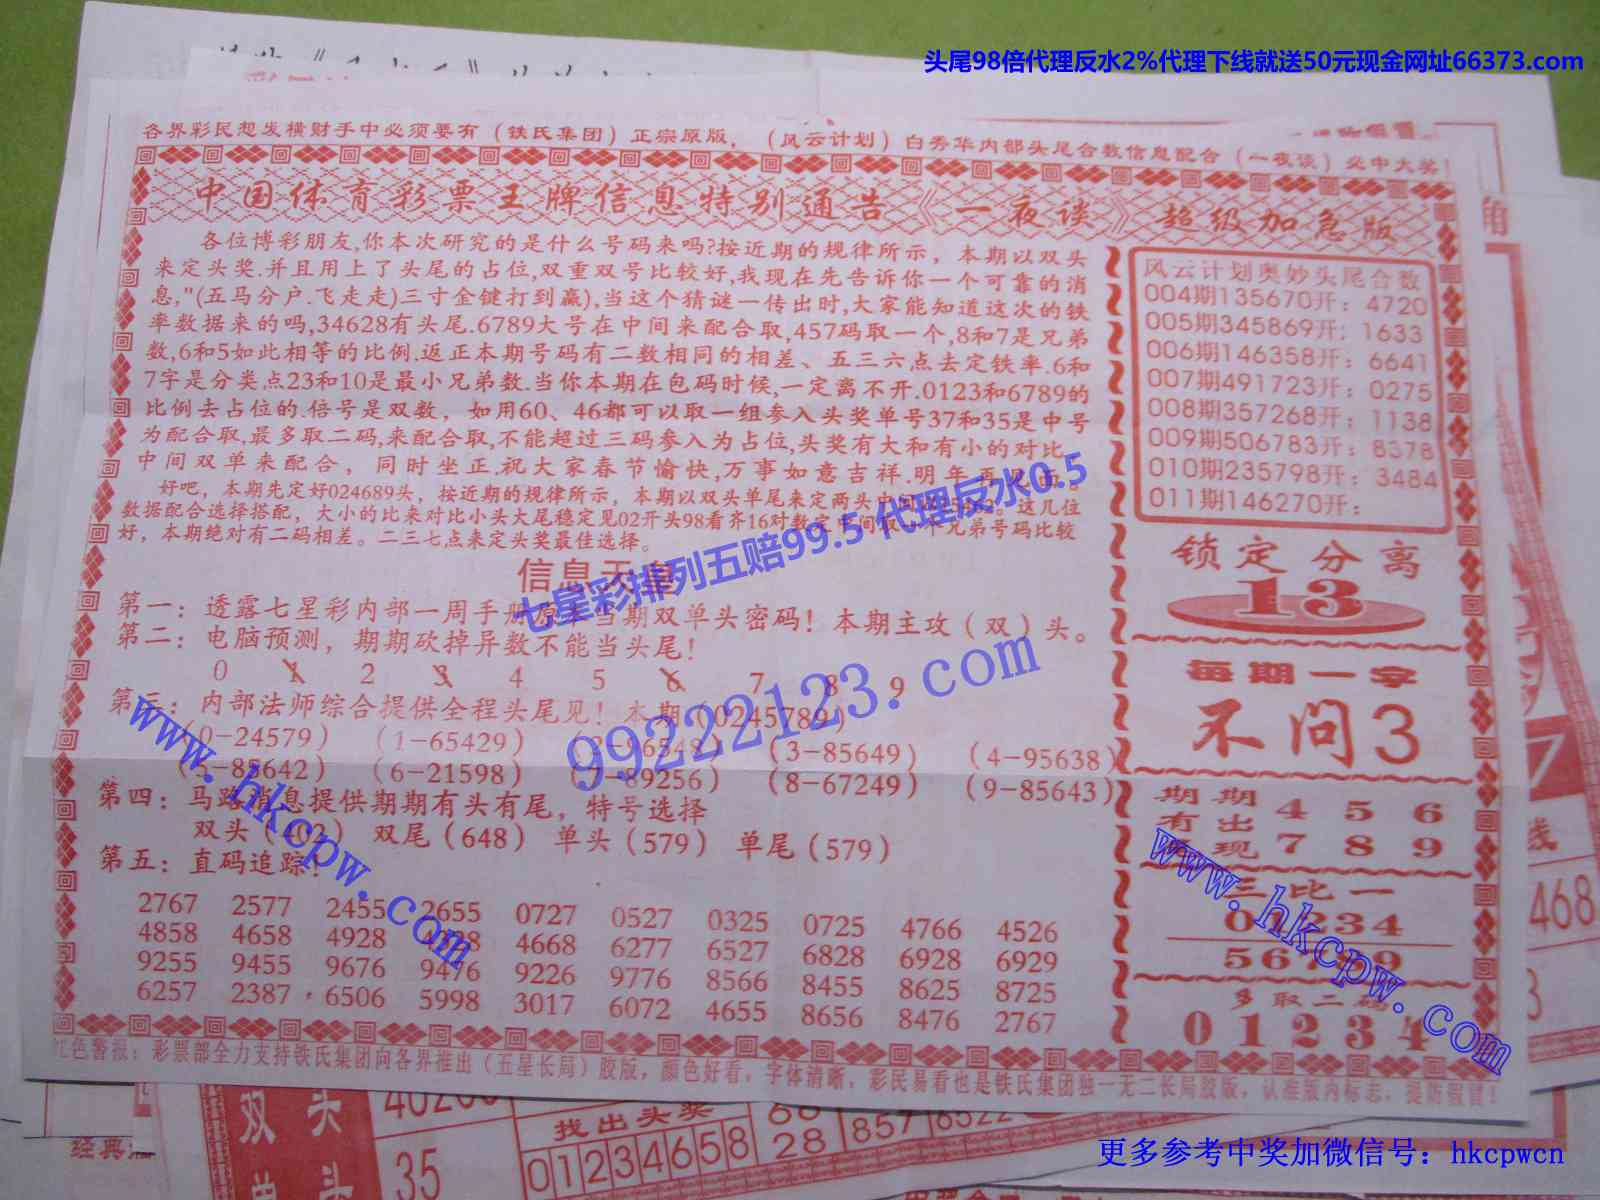 头尾98倍代理反水2%代理下线就送50元现金网址66373.com
各界彩民想发横财手中必须要有（铁氏集团）正宗原版，（风云计划）白秀华内部头尾合数信息配合（一夜谈）必中大奖！
中国体育彩票王牌信息特别通告《一夜谈》超级加急版
各位博彩朋友,你本次研究的是什么号码来吗?按近期的规律所示，本期以双头
来定头奖.并且用上了头尾的占位,双重双号比较好,我现在先告诉你一个可靠的消
息,"(五马分户.飞走走)三寸金键打到赢),当这个猜谜一传出时,大家能知道这次的铁
率数据来的吗,34628有头尾.6789大号在中间来配合取,457码取一个,8和7是兄弟
数,6和5如此相等的比例.返正本期号码有二数相同的相差、五三六点去定铁率.6和
7字是分类点23和10是最小兄弟数.当你本期在包码时候,一定离不开.0123和6789的
比例去占位的.倍号是双数，如用60、46都可以取一组参入头奖单号37和35是中号
为配合取,最多取二码,来配合取,不能超过三码参入为占位,头奖有大和有小的对比,
中间双单来配合，同时坐正.祝大家春节愉快,万事如意吉祥.明年再见面。
好吧，本期先定好024689头，按近期的规律所示，本期以双头单尾来定两头中间 这几位
数据配合选择搭配，大小的比来对比小头大尾稳定见02开头98看齐16对数 中间取 兄弟号码比较
好，本期绝对有二码相差。二三七点来定头奖最佳选择。
七星彩排列五赔99.5 代理反水0.5
信息天
第一：透露七星彩内部一周手册原 当期双单头密码！本期主攻（双）头。
第二：电脑预测，期期砍掉异数不能当头尾！
0 1 2 3 4 5 6 7 8 9
第三：内部法师综合提供全程头尾见！本期（0245789）
（0-24579）（1-65429）（2-96548）（3-85649）（4-95638）
（5-85642）（6-21598）（7-89256）（8-67249）（9-85643）
第四：马路消息提供期期有头有尾，特号选择
双头（402） 双尾（648） 单头（579） 单尾（579）
第五：直码追踪！
2767 2577 2455 2655 0727 0527 0325 0725 4766 4526
4858 4658 4928 4668 6277 6527 6828 6928 6929
9255 9455 9676 9476 9226 9776 8566 8455 8625 8725
6257 2387 6506 5998 3017 6072 4655 8656 8476 2767
99222123.com
www.hkcpw.com
风云计划奥妙头尾合数
004期135670开：4720
005期345869开：1633
006期146358开：6641
007期491723开：0275
008期357268开：1138
009期506783开：8378
010期235798开：3484
011期146270开：
锁定分离
13
每期一字
不问3
期期 4 5 6
有出
现 7 8 9
三比一
01234
56789
多取二码
01234
www.hkcpw.com
红色警报：彩票部全力支持铁氏集团向各界推出（五星长局）胶版，颜色好看，字体清晰，彩民易看也是铁氏集团独一无二长局胶版，认准版内标志，提防假冒！
双头
35
经典
找出头奖
01234658
68
28
857
6522
线
468
3
7
更多参考中奖加微信号：hkcpwcn